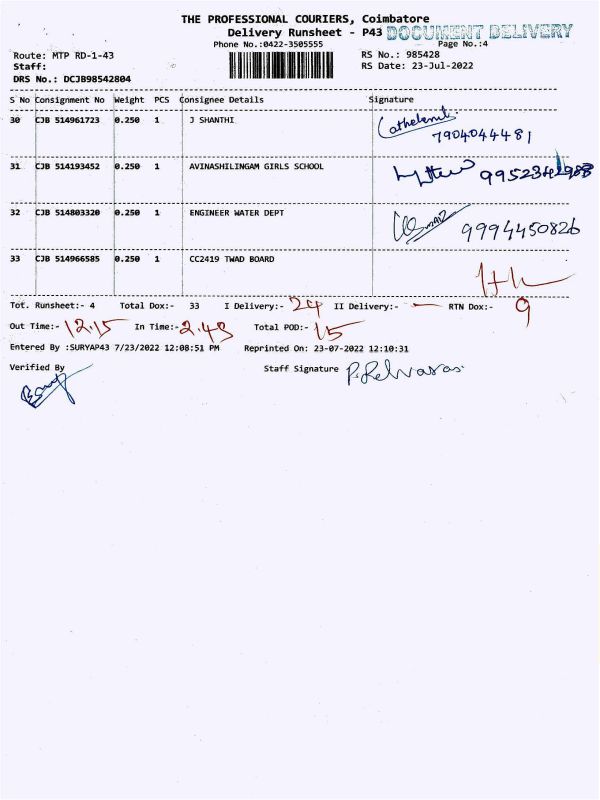 THE PROFESSIONAL COURIERS, Coimbatore
Delivery Runsheet - P43 DOCUMENT DELIVERY
Phone No.:0422-3505555 Page No.:4
Route: MTP RD-1-43 RS No.: 985428
Staff: RS Date: 23-Jul-2022
DRS No.: DCJB98542804
S No Consignment No Weight PCS Consignee Details Signature
30 CJB 514961723 0.250 1 J SHANTHI
7904044481
31 CJB 514193452 0.250 1 AVINASHILINGAM GIRLS SCHOOL
32 CJB 514803320 0.250 1 ENGINEER WATER DEPT
9994450826
33 CJB 514966585 0.250 1 CC2419 TWAD BOARD
Tot. Runsheet:- 4 Total Dox:- 33 I Delivery:- 24 II Delivery:- — RTN Dox:- 9
Out Time:- 12.15 In Time:- 2.43 Total POD:- 15
Entered By :SURYAP43 7/23/2022 12:08:51 PM Reprinted On: 23-07-2022 12:10:31
Verified By Staff Signature